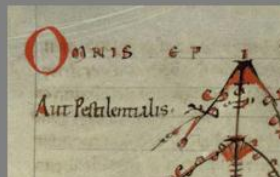 OMNIS EPI
Aut Pestilentialis.